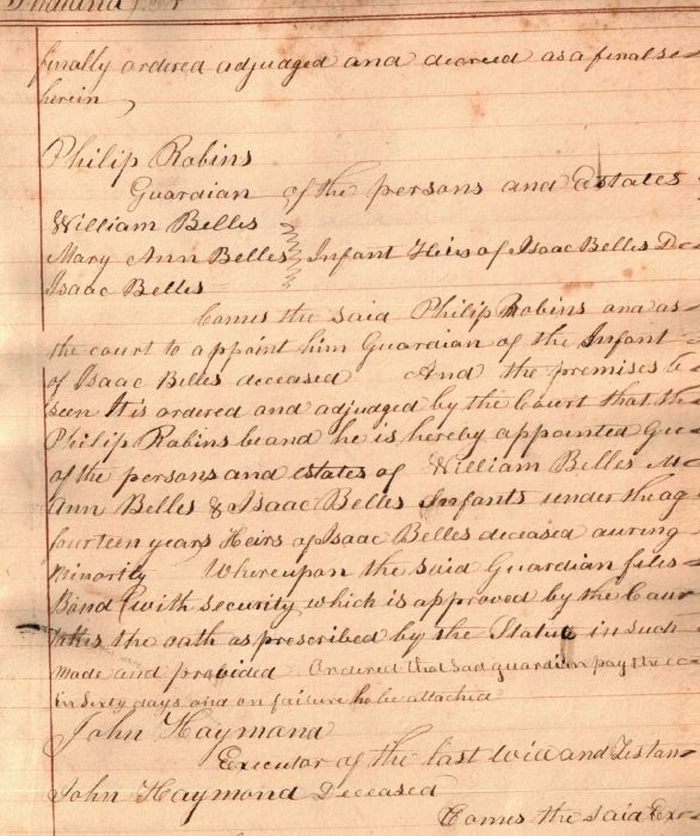 Indiana
finally ordered adjudged and decreed as a final se
herein
Philip Robins
Guardian of the persons and Estates
William Belles
Mary Ann Belles Infant Heirs of Isaac Belles De
Isaac Belles
Comes the said Philip Robins and as
the court to appoint him Guardian of the Infant
of Isaac Belles deceased And the premises b
seen It is ordered and adjudged by the Court that the
Philip Robins be and he is hereby appointed Gu
of the persons and estates of William Belles M
Ann Belles & Isaac Belles Infants under the ag
fourteen years Heirs of Isaac Belles deceased during
minority Whereupon the said Guardian files
Bond with security which is approved by the Cour
takes the oath as prescribed by the Statue in such
made and provided Ordered that Sad guardian pay the co
in sixty days and on failure to be attached
John Haymond
Executor of the last will and Testam
John Haymond Deceased
Comes the said Exe